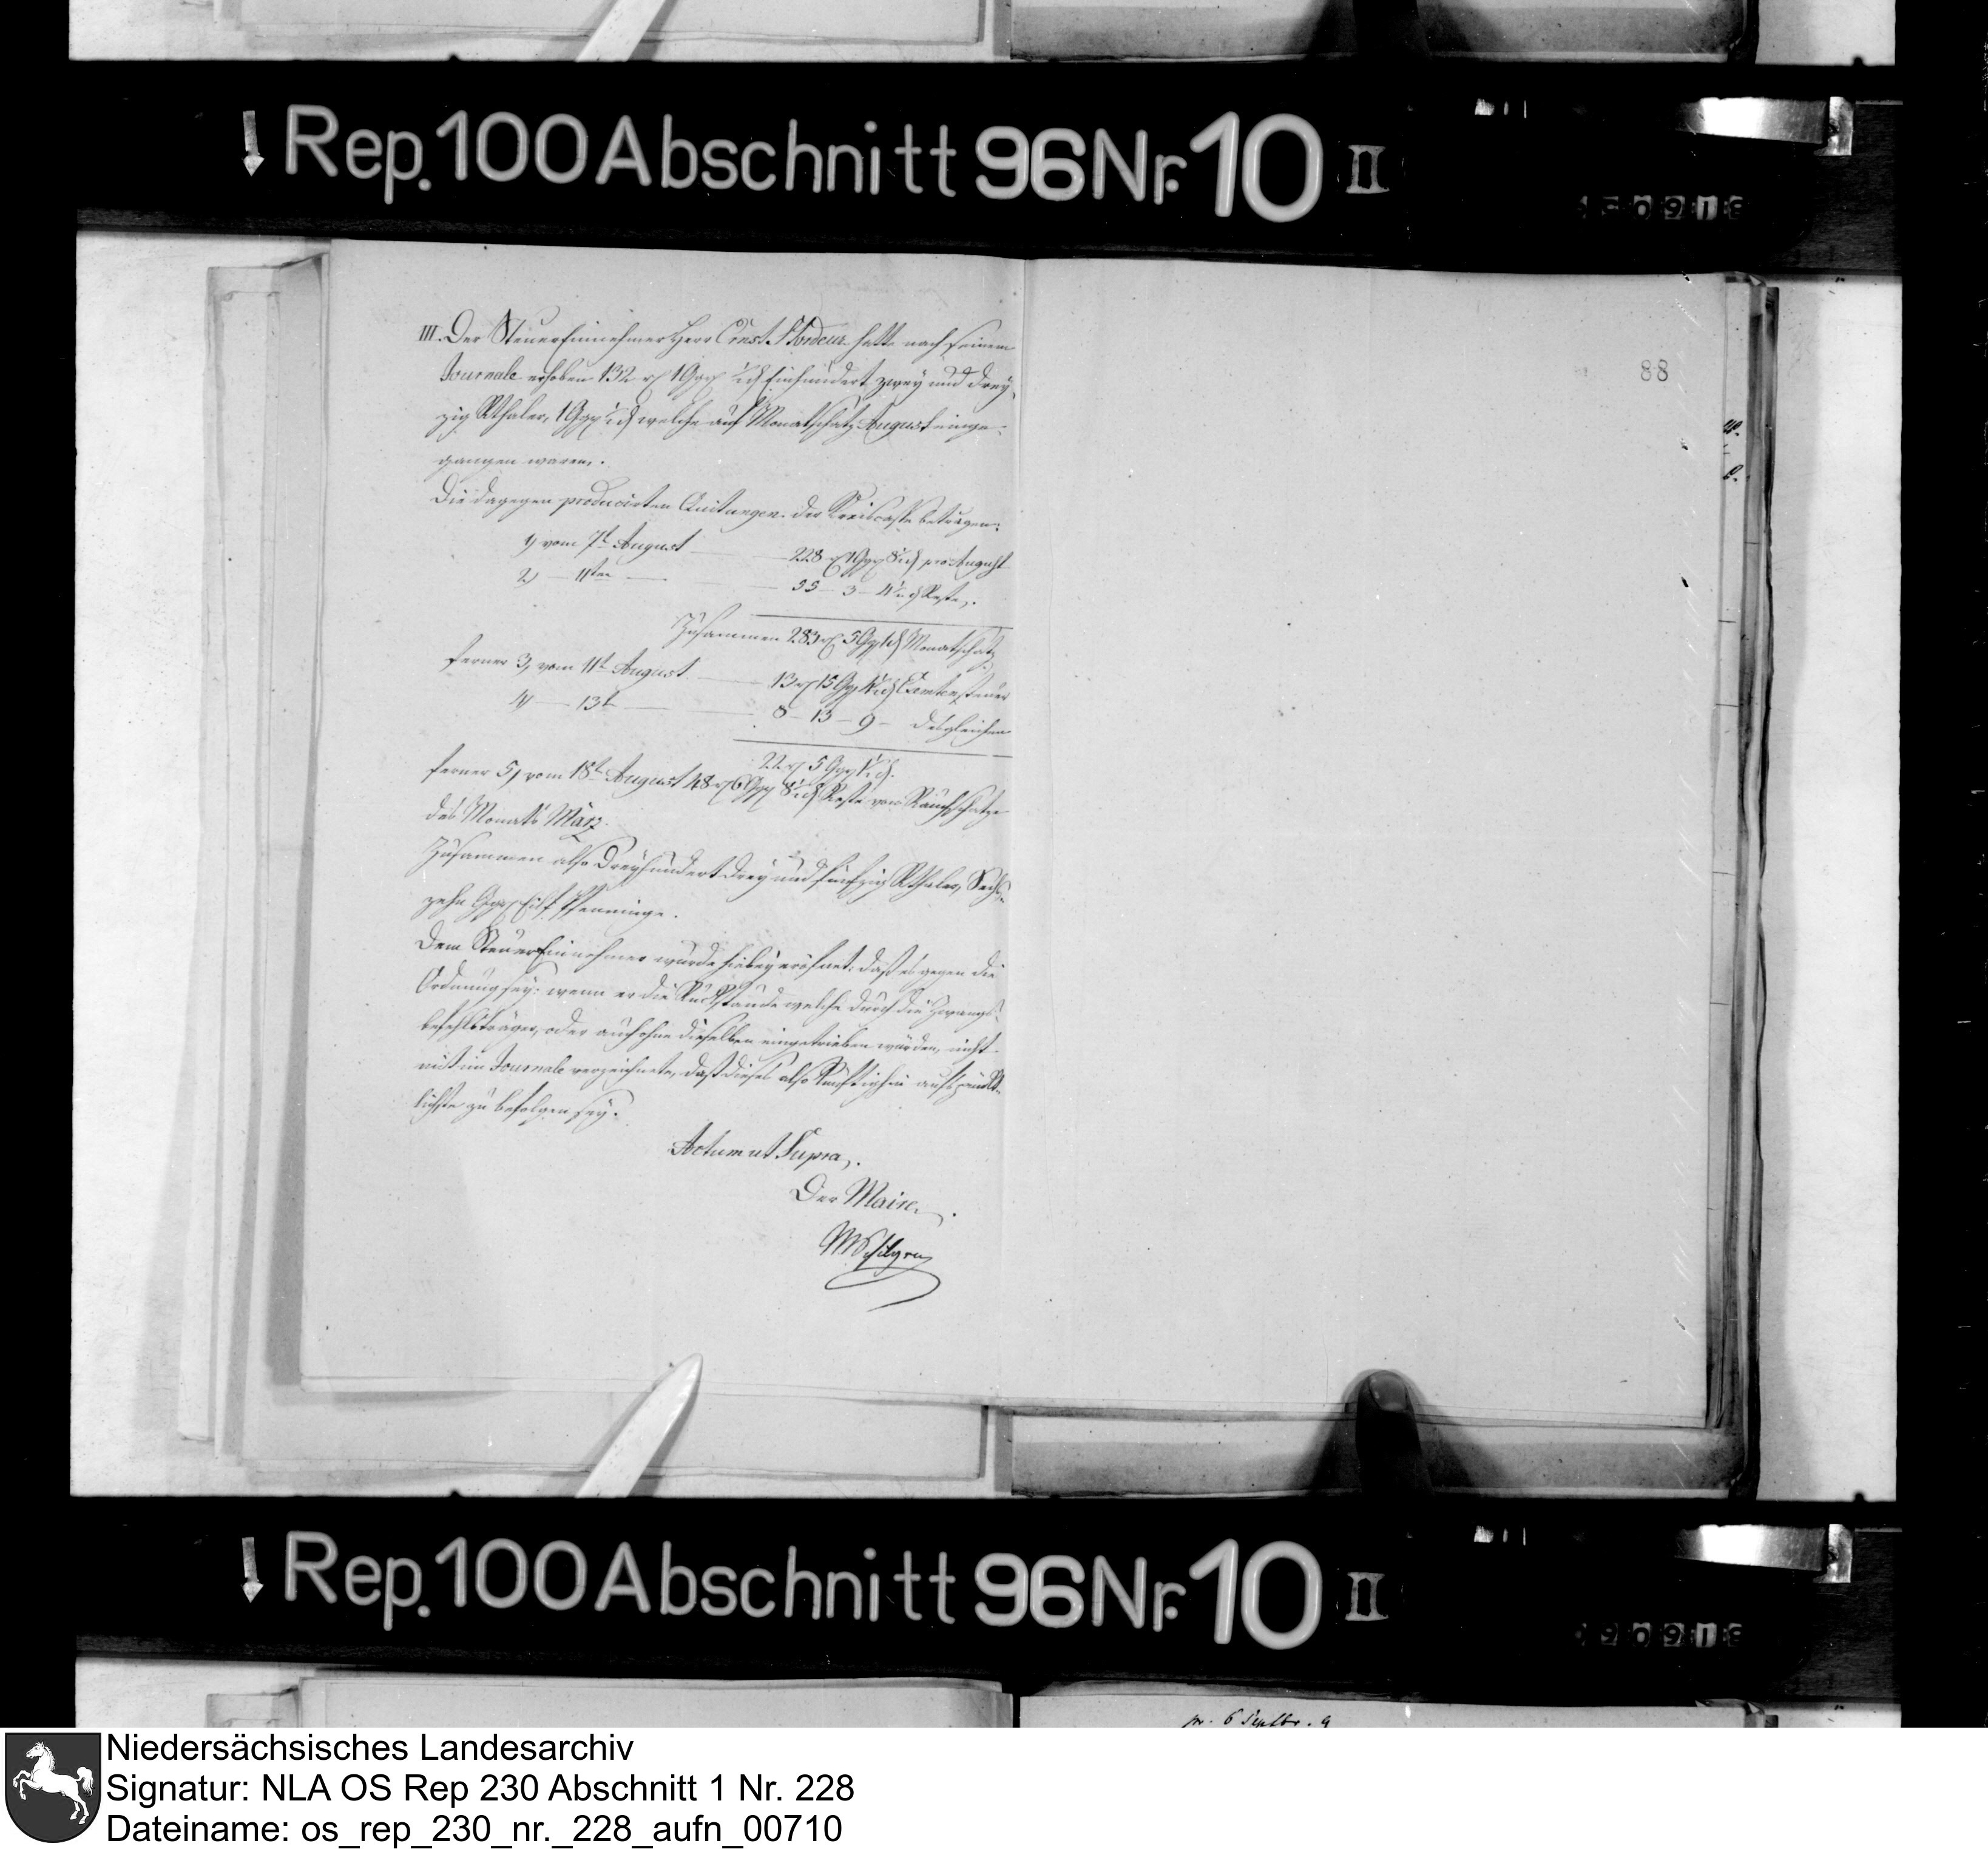 Rep. 100 Abschnitt 96 Nr. 10 II
III. Der SteuerEinnehmer Herr Ernst hatte nach seinem
Journale erhoben 132 rℓ 1 Ggr Einhundert zwey und drey-
zig Rthaler, 1 Ggr welche auf Monatschatz August einge-
gangen waren.
Die dagegen producirten Quitungen der Kreiscasse betragen:
1) vom 7t August — 228 rℓ 1 Ggr 8 pro August
2) — 11ten — — 55 — 3 — Reste.
Zusammen 283 rℓ 5 Ggr Monatschatz
ferner 3, vom 11t August — 13 rℓ 15 Ggr 4 Cantonsteuer
4) — 13t — — 8 — 13 — 9 — desgleichen
22 rℓ 5 Ggr 1
ferner 5, vom 18t August 48 rℓ 6 Ggr 8 Reste von Rauchschatze
des Monats März.
Zusammen also Dreyhundert drey und funfzig Rthaler, Sechs-
zehn Ggr Eilf Pfenninge.
Dem SteuerEinnehmer wurde hiebey eröfnet: daß es gegen die
Ordnung sey: wenn er die Rückstände welche durch die Zwangs-
befehlsträger, oder auch ohne dieselben eingetrieben würden, nicht
mit im Journale verzeichnete, daß dieses also künftighin aufs pünkt-
lichste zu befolgen sey.
Actum ut Supra.
Der Maire.
88
Rep. 100 Abschnitt 96 Nr. 10 II
pr. 6 Septbr. 9
Niedersächsisches Landesarchiv
Signatur: NLA OS Rep 230 Abschnitt 1 Nr. 228
Dateiname: os_rep_230_nr._228_aufn_00710